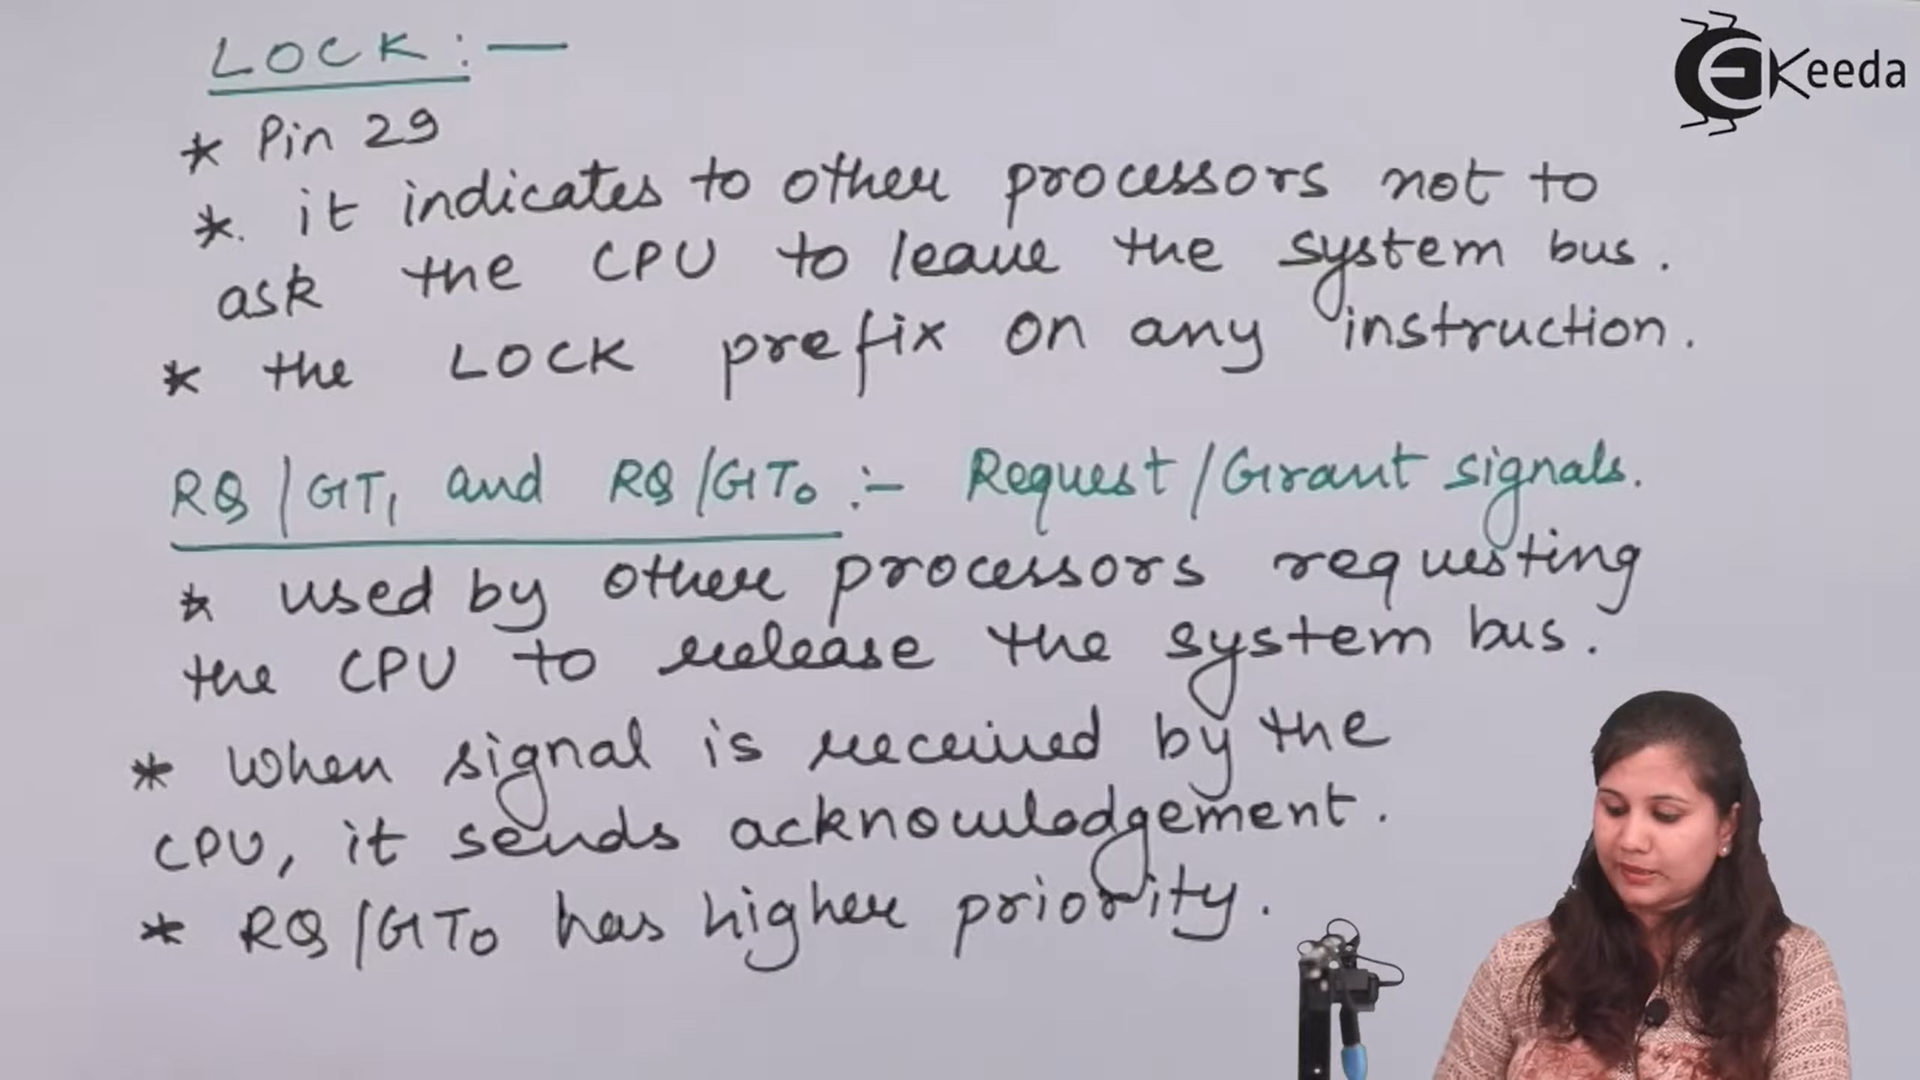 EKeeda
LOCK:—
* Pin 29
*. it indicates to other processors not to
ask the CPU to leave the system bus.
* the LOCK prefix on any instruction.
RQ/GT₁ and RQ/GT₀ :- Request/Grant signals.
* used by other processors requesting
the CPU to release the system bus.
* When signal is received by the
CPU, it sends acknowledgement.
* RQ/GT₀ has higher priority.